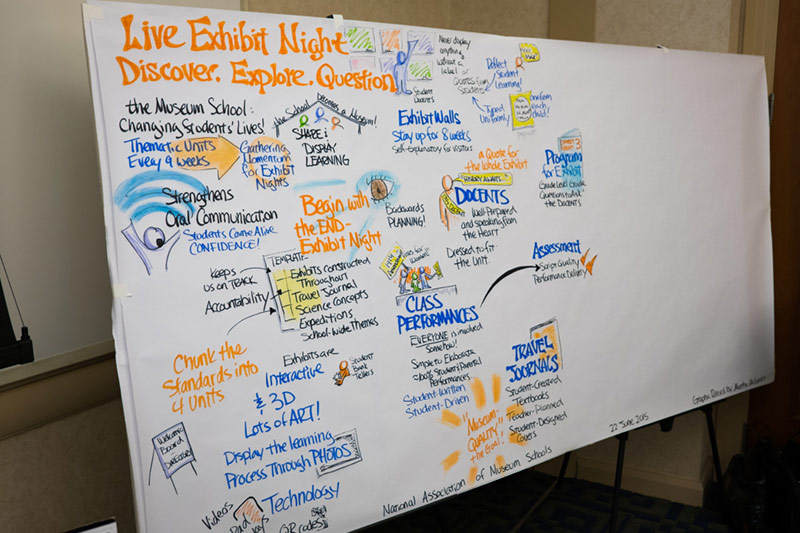 Live Exhibit Night
Discover. Explore. Question.
the Museum School:
Changing Students' Lives!
Thematic Units
Every 9 weeks
Gathering
Momentum
for Exhibit
Nights
the School becomes a Museum!
SHARE &
DISPLAY
LEARNING
Student
Docents
Never display
anything
without a
label
or
QUOTES from
Students
Reflect
Student
Learning!
Typed
Uniformly
one from
each
child!
Exhibit Walls
Stay up for 8 weeks
Self-Explanatory for visitors
Strengthens
Oral Communication
Students Come Alive
CONFIDENCE!
Begin with
the END-
Exhibit Night
Backwards
PLANNING!
a Quote for
the Whole Exhibit
DOCENTS
Well-Prepared
and speaking from
the Heart
Dressed to fit
the Unit.
Program
for EXHIBIT
Grade Level Guide
Questions to Ask
the DOCENTS
Assessment
Script Quality
Performance Delivery
Keeps
us on TRACK
Accountability
TEMPLATE
Exhibits constructed
Throughout
Travel Journal
Science Concepts
Expeditions
School-wide Themes
CLASS
PERFORMANCES
EVERYONE is involved
Somehow!
Simple to Elaborate
Performances
Student-Written
Student-Driven
TRAVEL
JOURNALS
Student-Created
Textbooks
Teacher-Planned
Student-Designed
Covers
"Museum-
QUALITY"
the Goal!
Chunk the
Standards into
4 Units
Exhibits are
Interactive
& 3D
Lots of ART!
Display the learning
Process Through PHOTOS
Student
Book
Tellers
Welcome
Board
DIRECTORY
Technology
Videos
iPad
QR codes
National Association of Museum Schools
22 June 2015